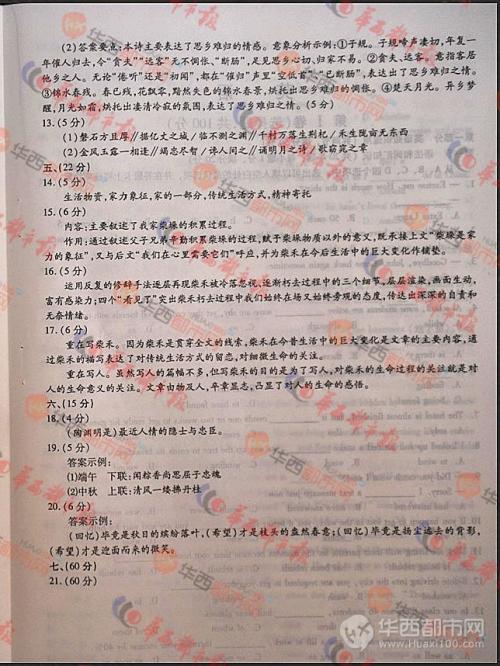 (2)答案要点:本诗主要表达了思乡难归的情感。意象分析示例:①子规。子规啼声凄切,年复一
年催人归去,令“贪夫”“远客”无不惆怅、“断肠”,足见思乡心切、归家不易。②贪夫、远客。意指客居
他乡之人。无论“倦听”还是“初闻”,都在“催归”声里“空低首”“已断肠”,表达出了思乡难归之情。
③锦水春残。春已残,花飘零,黯然失色的锦官春景,烘托出思乡难归的惆怅。④楚天月光。异乡梦
醒,月光如霜,烘托出凄清冷寂的氛围,表达了思乡难归之情。(5分)
13.(5分)
(1)磐石方且厚∥据亿丈之城∕临不测之渊∥千村万落生荆杞∕禾生陇亩无东西
(2)金风玉露一相逢∥竭忠尽智∕谗人间之∥诵明月之诗∕歌窈窕之章
五、(22分)
14.(5分)
生活物资,家力象征,家的一部分,传统生活方式,精神寄托
15.(6分)
内容:主要叙述了我家柴垛的积累过程。
作用:通过叙述父子兄弟辛勤积累柴垛的过程,赋予柴垛物质以外的意义,既承接上文“柴垛是家
力的象征”,又与后文“我们在心里需要它们”呼应,并为柴禾在今后生活中的巨大变化作铺垫。
16.(5分)
运用反复的修辞手法逐层再现柴禾被冷落忽视、逐渐朽去过程中的三个细节,层层渲染,画面生动,
富有感染力;四个“看见了”突出柴禾朽去过程中我们始终在场又始终旁观的态度,传达出深深的自责和
无奈情绪。
17.(6分)
重在写柴禾。因为柴禾是贯穿全文的线索,柴禾在今昔生活中的巨大变化是文章的主要内容,通
过柴禾的描写表达了对传统生活方式的留恋,对细微生命的关注。
重在写人。虽然写人的篇幅不多,但写柴禾的目的是为了写人,对柴禾的生命过程的关注就是对
人的生命意义的关注。文章由物及人,卒章显志,凸显了对人的生命的感悟。
六、(15分)
18.(4分)
(陶渊明是)最近人情的隐士与忠臣。
19.(5分)
答案示例:
(1)端午 下联:闲粽香尚思屈子忠魂
(2)中秋 上联:清风一缕拂丹桂
20.(6分)
答案示例:
(回忆)毕竟是秋日的缤纷落叶,(希望)才是枝头的盎然春意;(回忆)毕竟是扬尘远去的背影,
(希望)才是迎面而来的微笑。
七、(60分)
21.(60分)
华西都市网
www.Huaxi100.com